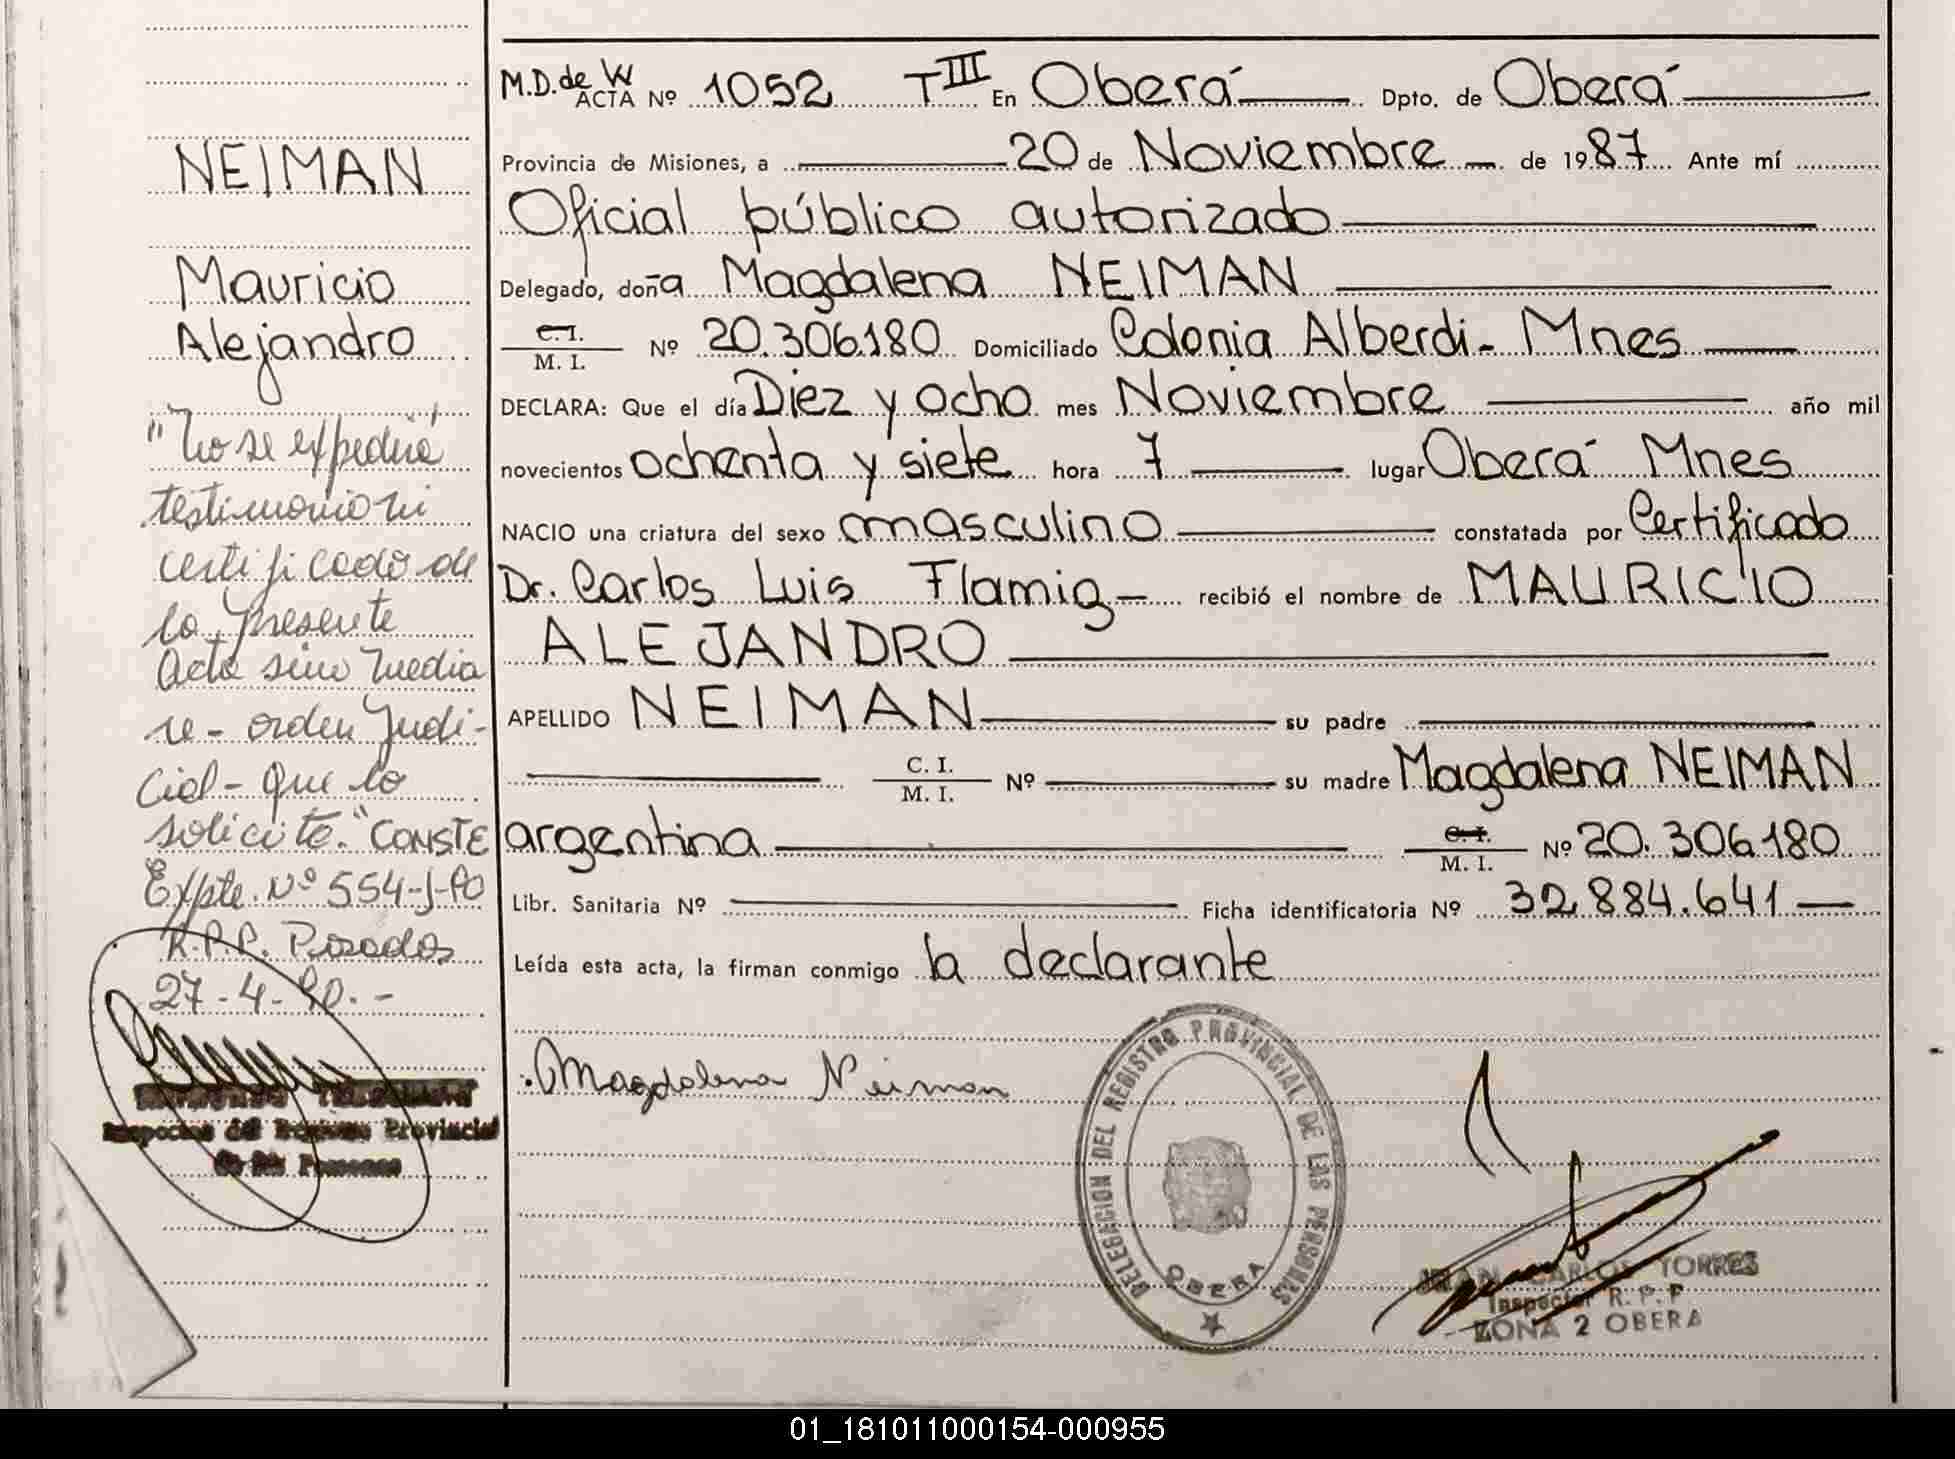 NEIMAN
Mauricio
Alejandro
"No se expedirá
testimonio ni
certificado de
la presente
Acta sino media
re - orden Judi-
cial - que lo
solicite." CONSTE
Expte. Nº 554-J-90
R.P.P. Posadas
27-4-90.-
Inspector del Registro Provincial
de las Personas
M.D. de W
ACTA Nº 1052 T III En Oberá Dpto. de Oberá
Provincia de Misiones, a 20 de Noviembre de 1987 Ante mí
Oficial público autorizado
Delegado, doña Magdalena NEIMAN
C.I.
M. I. Nº 20.306.180 Domiciliado Colonia Alberdi - Mnes
DECLARA: Que el día Diez y ocho mes Noviembre año mil
novecientos ochenta y siete hora 7 lugar Oberá Mnes
NACIO una criatura del sexo masculino constatada por Certificado
Dr. Carlos Luis Flamig - recibió el nombre de MAURICIO
ALEJANDRO
APELLIDO NEIMAN su padre
C. I.
M. I. Nº su madre Magdalena NEIMAN
argentina C.I.
M. I. Nº 20.306.180
Libr. Sanitaria Nº Ficha identificatoria Nº 32.884.641
Leída esta acta, la firman conmigo la declarante
Magdalena Neiman
DELEGACION DEL REGISTRO PROVINCIAL DE LAS PERSONAS
OBERA
JUAN CARLOS TORRES
Inspector R. P. P
ZONA 2 OBERA
01_181011000154-000955